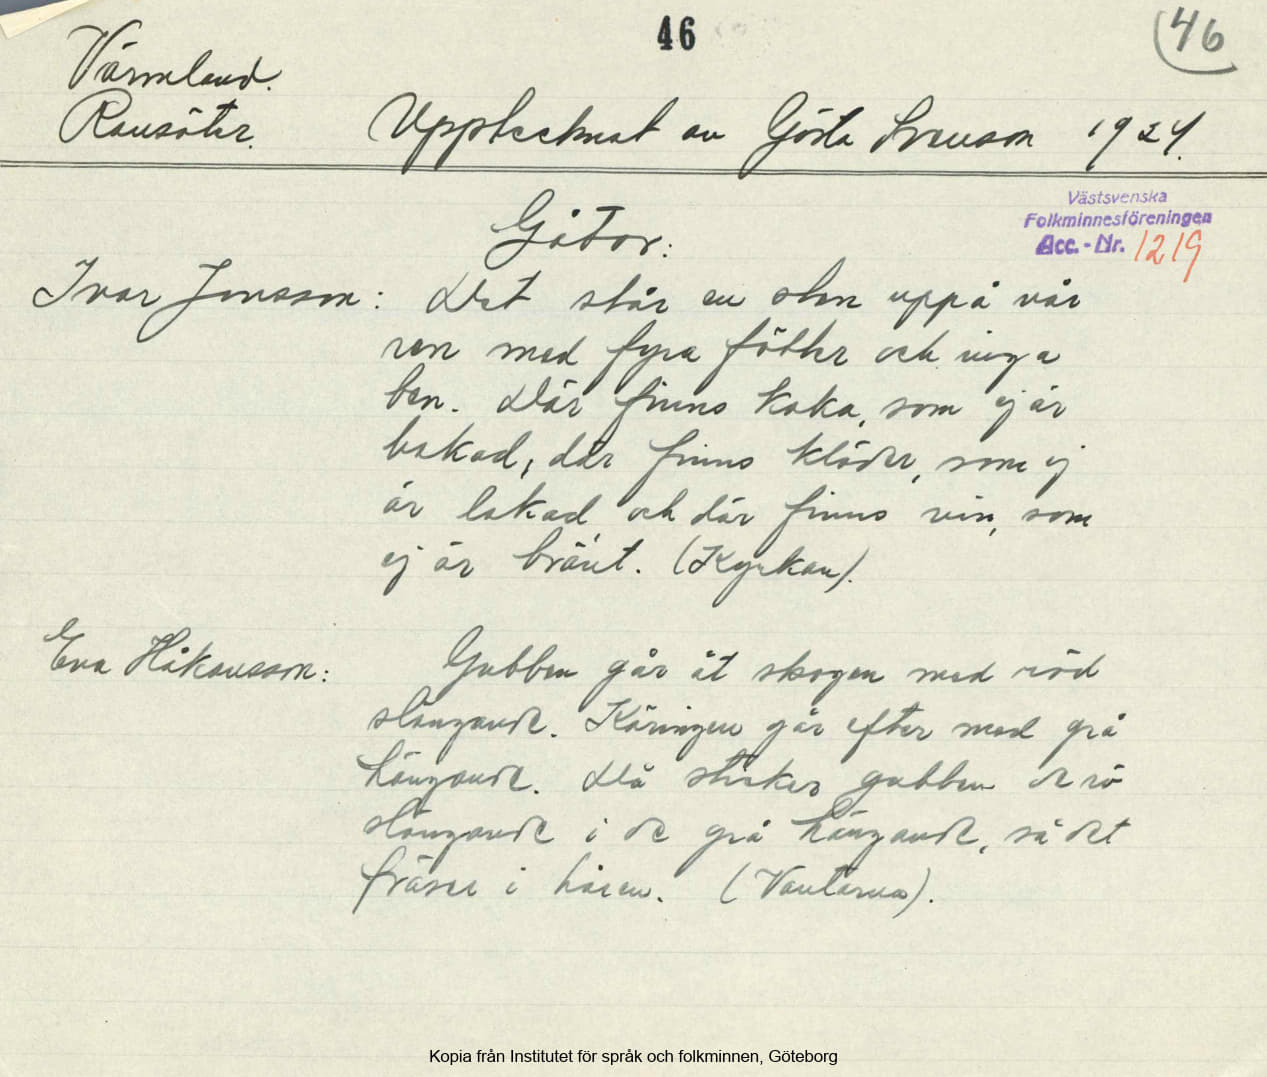 46
46
Värmland.
Ransäter.
Upptecknat av Gösta Svenson 1924.
Västsvenska
Folkminnesföreningen
Acc. - Nr. 1219
Gåtor:
Ivar Jonsson: Det står en sten uppå vår
ren med fyra fötter och inga
ben. Där finns kaka, som ej är
bakad, där finns kläder, som ej
är lakad och där finns vin, som
ej är bränt. (Kyrkan).
Eva Håkansson: Gubben går åt skogen med röd
slängande. Käringen går efter med grå
hängande. Då sticker gubben de rö
slängande i de grå hängande, så det
fräser i håren. (Vantarna).
Kopia från Institutet för språk och folkminnen, Göteborg